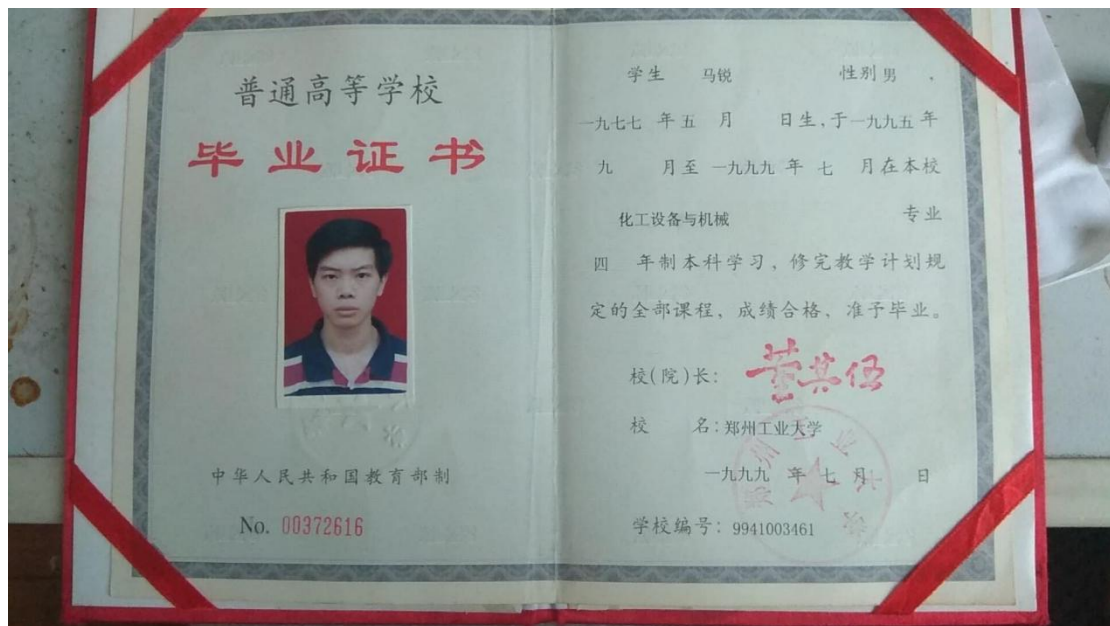 普通高等学校
毕业证书
中华人民共和国教育部制
No. 00372616
学生 马锐 性别 男 ,
一九七七 年 五 月 日生, 于 一九九五 年
九 月至 一九九九 年 七 月在本校
化工设备与机械 专业
四 年制本科学习, 修完教学计划规
定的全部课程, 成绩合格, 准予毕业。
校(院)长: 董其伍
校 名: 郑州工业大学
一九九九 年 七 月 日
学校编号: 9941003461